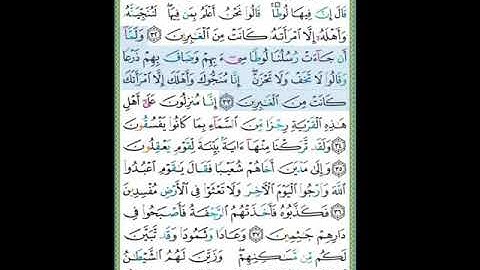 قَالَ إِنَّ فِيهَا لُوطًا ۚ قَالُوا۟ نَحْنُ أَعْلَمُ بِمَن فِيهَا ۖ لَنُنَجِّيَنَّهُۥ
وَأَهْلَهُۥٓ إِلَّا ٱمْرَأَتَهُۥ كَانَتْ مِنَ ٱلْغَـٰبِرِينَ ٣٢ وَلَمَّآ
أَن جَآءَتْ رُسُلُنَا لُوطًا سِىٓءَ بِهِمْ وَضَاقَ بِهِمْ ذَرْعًا
وَقَالُوا۟ لَا تَخَفْ وَلَا تَحْزَنْ ۖ إِنَّا مُنَجُّوكَ وَأَهْلَكَ إِلَّا ٱمْرَأَتَكَ
كَانَتْ مِنَ ٱلْغَـٰبِرِينَ ٣٣ إِنَّا مُنزِلُونَ عَلَىٰٓ أَهْلِ
هَـٰذِهِ ٱلْقَرْيَةِ رِجْزًا مِّنَ ٱلسَّمَآءِ بِمَا كَانُوا۟ يَفْسُقُونَ
٣٤ وَلَقَد تَّرَكْنَا مِنْهَآ ءَايَةًۢ بَيِّنَةً لِّقَوْمٍ يَعْقِلُونَ
٣٥ وَإِلَىٰ مَدْيَنَ أَخَاهُمْ شُعَيْبًا فَقَالَ يَـٰقَوْمِ ٱعْبُدُوا۟
ٱللَّهَ وَٱرْجُوا۟ ٱلْيَوْمَ ٱلْـَٔاخِرَ وَلَا تَعْثَوْا۟ فِى ٱلْأَرْضِ مُفْسِدِينَ
٣٦ فَكَذَّبُوهُ فَأَخَذَتْهُمُ ٱلرَّجْفَةُ فَأَصْبَحُوا۟ فِى
دَارِهِمْ جَـٰثِمِينَ ٣٧ وَعَادًا وَثَمُودَا۟ وَقَد تَّبَيَّنَ
لَكُم مِّن مَّسَـٰكِنِهِمْ ۖ وَزَيَّنَ لَهُمُ ٱلشَّيْطَـٰنُ